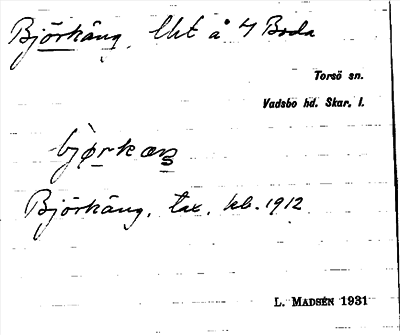 Björkäng, lht å 4 Boda
Torsö sn.
Vadsbo hd. Skar. l.
bjørkæŋ
Björkäng, tax. kb. 1912
L. MADSÉN 1931